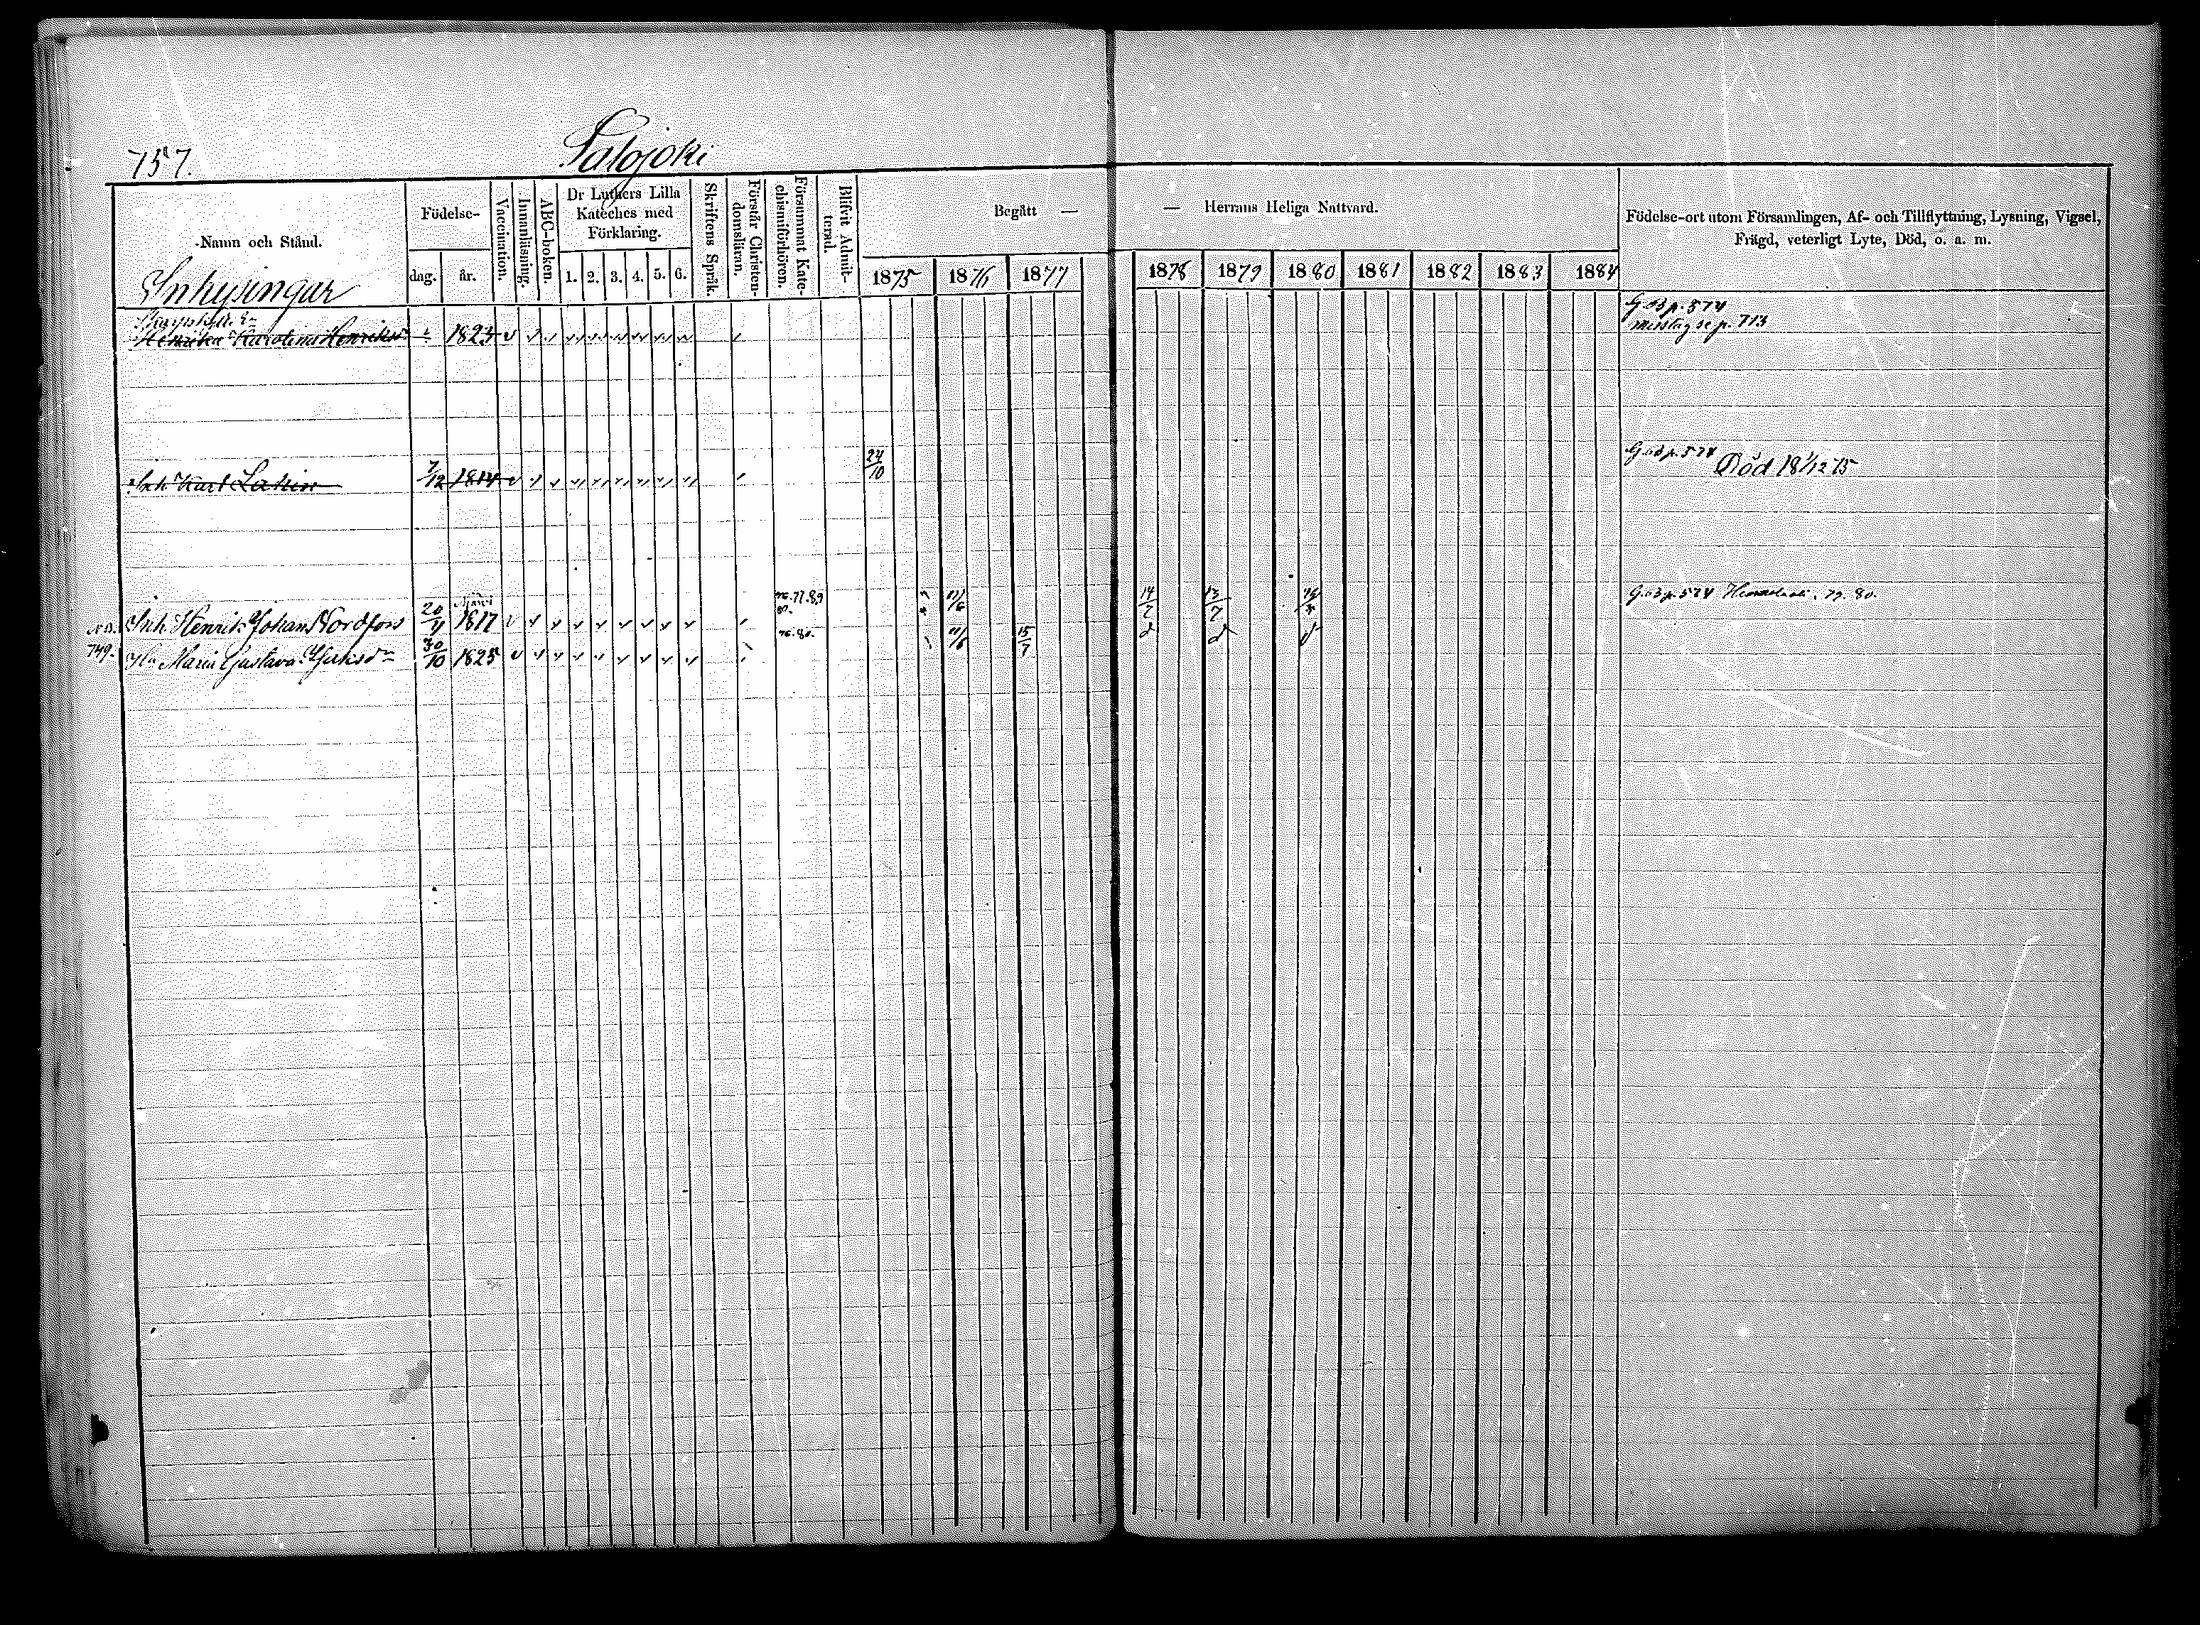 757.
Salojoki
Namn och Stånd.
Inhysingar
Födelse-
dag.
år.
Vaccination.
Innanläsning.
ABC-boken.
Dr Luthers Lilla
Kateches med
Förklaring.
1. 2. 3. 4. 5. 6.
Skriftens Språk.
Förstår Christen-
domsläran.
Försummat Kate-
chismiförhören.
Blifvit Admit-
terad.
Begått —
— Herrans Heliga Nattvard.
1875 1876 1877 1878 1879 1880 1881 1882 1883 1884
Födelse-ort utom Församlingen, Af- och Tillflyttning, Lysning, Vigsel,
Frägd, veterligt Lyte, Död, o. a. m.
G. Bb p. 574
Henrika Karolina Henriksd 1823
misstag se p. 713
Inh. Karl Lakin 7/12 1814 24/10 G. Bb p. 574 Död 18 1/12 75
Inh. Henrik Johan Nordfors 20/4 1817 76. 77. 89 14/7 13/7 G. Bb p. 574 79. 80.
749. Maria Gustava 30/10 1825 76. 80. 15/7